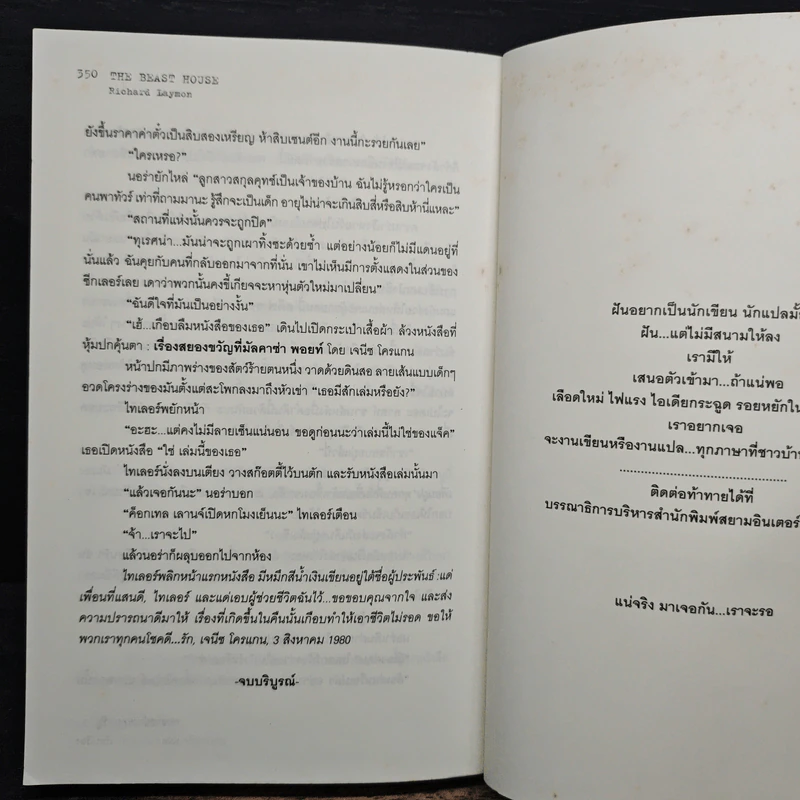 350 THE BEAST HOUSE
Richard Laymon
ยังขึ้นราคาค่าตั๋วเป็นสิบสองเหรียญ ห้าสิบเซนต์อีก งานนี้กะรวยกันเลย"
"ใครเหรอ?"
นอร่ายักไหล่ "ลูกสาวสกุลคุทซ์เป็นเจ้าของบ้าน ฉันไม่รู้หรอกว่าใครเป็น
คนพาทัวร์ เท่าที่ถามมานะ รู้สึกจะเป็นเด็ก อายุไม่น่าจะเกินสิบสี่หรือสิบห้านี่แหละ"
"สถานที่แห่งนั้นควรจะถูกปิด"
"ทุเรศน่า...มันน่าจะถูกเผาทิ้งซะด้วยซ้ำ แต่อย่างน้อยก็ไม่มีแดนอยู่ที่
นั่นแล้ว ฉันคุยกับคนที่กลับออกมาจากที่นั่น เขาไม่เห็นมีการตั้งแสดงในส่วนของ
ซีกเลอร์เลย เดาว่าพวกนั้นคงขี้เกียจจะหาหุ่นตัวใหม่มาเปลี่ยน"
"ฉันดีใจที่มันเป็นอย่างงั้น"
"เฮ้...เกือบลืมหนังสือของเธอ" เดินไปเปิดกระเป๋าเสื้อผ้า ล้วงหนังสือที่
หุ้มปกคุ้นตา : เรื่องสยองขวัญที่มัลคาซ่า พอยท์ โดย เจนีซ โครแกน
หน้าปกมีภาพร่างของสัตว์ร้ายตนหนึ่ง วาดด้วยดินสอ ลายเส้นแบบเด็กๆ
อวดโครงร่างของมันตั้งแต่สะโพกลงมาถึงหัวเข่า "เธอมีสักเล่มหรือยัง?"
ไทเลอร์พยักหน้า
"อะฮะ...แต่คงไม่มีลายเซ็นแน่นอน ขอดูก่อนนะว่าเล่มนี้ไม่ใช่ของแจ็ค"
เธอเปิดหนังสือ "ใช่ เล่มนี้ของเธอ"
ไทเลอร์นั่งลงบนเตียง วางสก๊อตตี้ไว้บนตัก และรับหนังสือเล่มนั้นมา
"แล้วเจอกันนะ" นอร่าบอก
"ค็อกเทล เลานจ์เปิดหกโมงเย็นนะ" ไทเลอร์เตือน
"จ้า...เราจะไป"
แล้วนอร่าก็ผลุบออกไปจากห้อง
ไทเลอร์พลิกหน้าแรกหนังสือ มีหมึกสีน้ำเงินเขียนอยู่ใต้ชื่อผู้ประพันธ์:แด่
เพื่อนที่แสนดี, ไทเลอร์ และแด่เอบผู้ช่วยชีวิตฉันไว้...ขอขอบคุณจากใจ และส่ง
ความปรารถนาดีมาให้ เรื่องที่เกิดขึ้นในคืนนั้นเกือบทำให้เอาชีวิตไม่รอด ขอให้
พวกเราทุกคนโชคดี...รัก, เจนีซ โครแกน, 3 สิงหาคม 1980
-จบบริบูรณ์-
ฝันอยากเป็นนักเขียน นักแปลมั้
ฝัน...แต่ไม่มีสนามให้ลง
เรามีให้
เสนอตัวเข้ามา...ถ้าแน่พอ
เลือดใหม่ ไฟแรง ไอเดียกระฉูด รอยหยักใน
เราอยากเจอ
จะงานเขียนหรืองานแปล...ทุกภาษาที่ชาวบ้าน
ติดต่อท้าทายได้ที่
บรรณาธิการบริหารสำนักพิมพ์สยามอินเตอร์
แน่จริง มาเจอกัน...เราจะรอ